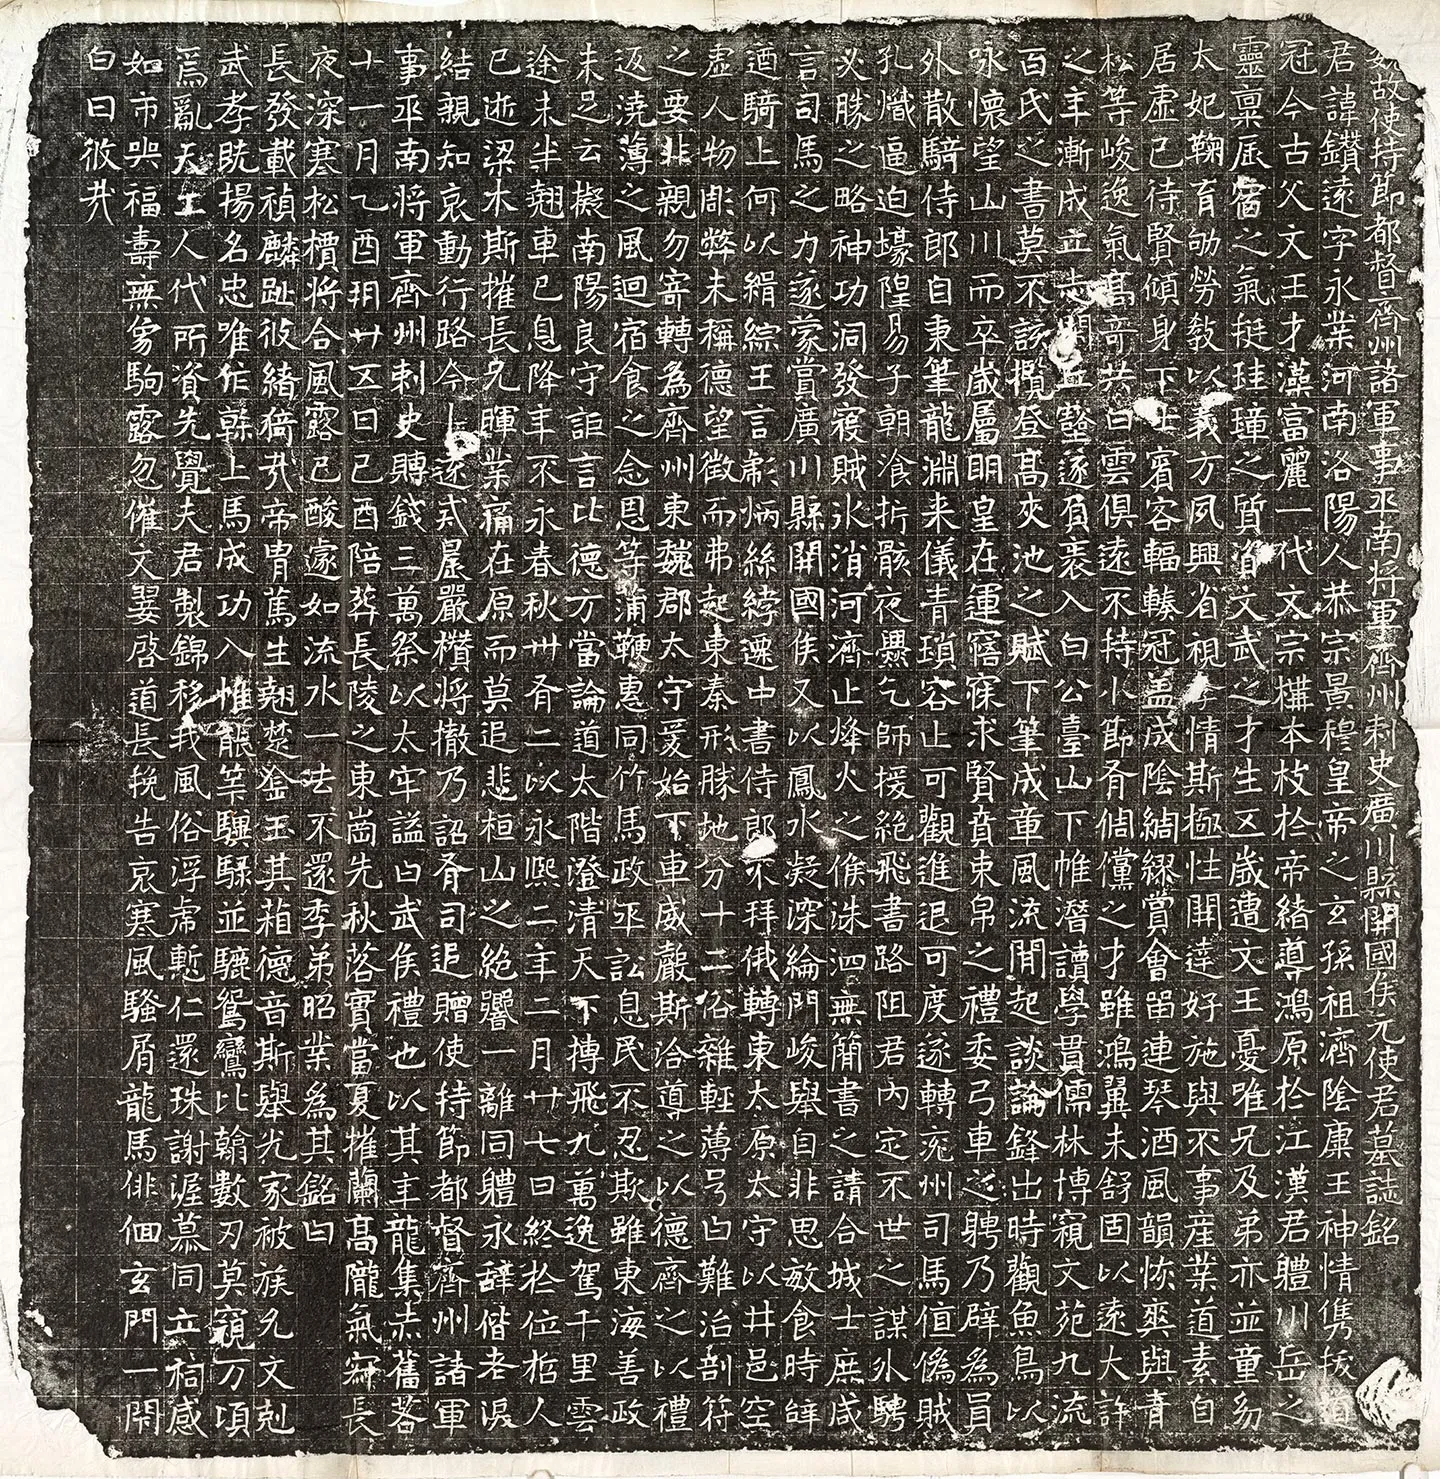 魏故使持節都督齊州諸軍事平南將軍齊州刺史廣川縣開國侯元使君墓誌銘
君諱鑽遠字永業河南洛陽人恭宗景穆皇帝之玄孫祖濟陰康王神情雋拔道
冠今古父文王才藻富麗一代文宗構本枝於帝緒導鴻原於江漢君體川岳之
靈稟辰宿之氣挺珪璋之質資文武之才生五歲遭文王憂唯兄及弟亦並童幼
太妃鞠育劬勞教以義方夙興省視孝情斯極性開達好施與不事產業道素自
居虛己待賢傾身下士賓客輻輳冠盖成陰綢繆賞會留連琴酒風韻恢奭與青
松等峻逸氣高奇共白雲俱遠不持小節有倜儻之才雖鴻翼未舒固以遠大許
之年漸成立志闚丘壑遂負袠入白公臺山下帷潛讀學貫儒林博窺文苑九流
百氏之書莫不該攬登高夾池之賦下筆成章風流閒起談論鋒出時觀魚鳥以
咏懷望山川而卒歲屬明皇在運寤寐求賢賁東帛之禮委弓車之聘乃辟為員
外散騎侍郎自秉筆龍淵来儀青瑣容止可觀進退可度遂轉兖州司馬值偽賊
孔熾逼迫壕隍易子朝飡折骸夜爨乞師援絕飛書路阻君內定不世之謀外騁
必勝之略神功洞發寇賊氷消河濟止烽火之候洙泗無簡書之請合城士庶咸
言司馬之力遂蒙賞廣川縣開國侯又以鳳水凝深綸門峻舉自非思敏食時辝
逎騎上何以緝綜王言彪炳絲綍遷中書侍郎不拜俄轉東太原太守以井邑空
虛人物彫弊未稱德望徵而弗起東秦形勝地分十二俗雜輕薄号曰難治剖符
之要非親勿寄轉為齊州東魏郡太守爰始下車威嚴斯洽導之以德齊之以禮
返澆薄之風迴宿食之念恩等蒲鞭惠同竹馬政平訟息民不忍欺雖東海善政
未足云擬南陽良守詎言比德方當論道太階澄清天下摶飛九萬逸駕千里雲
途未半翹車已息降年不永春秋卅有二以永熙二年二月廿七日終於位哲人
已逝梁木斯摧長兄暉業痛在原而莫追悲桓山之絕響一離同體永辭偕老泯
結親知哀動行路今上遂貳扆嚴欑將撤乃詔有司追贈使持節都督齊州諸軍
事平南將軍齊州刺史賻錢三萬祭以太牢謚曰武侯禮也以其年龍集赤舊莟
十一月乙酉朔廿五日己酉陪葬長陵之東崗先秋落實當夏摧蘭高隴氣寂長
夜深寒松檟將合風露已酸遽如流水一去不還季弟昭業為其銘曰
長發載禎麟趾攸緒猗㢤帝胄蔦生翹楚釜玉其葙德音斯舉光家被族允文剋
武孝旣揚名忠唯作幹上馬成功入惟龍筭驥騄並驅鴛鸞比翰數刃莫窺万頃
焉亂天工人代所資先覺夫君製錦移我風俗浮虎慙仁還珠謝渥慕同立祠感
如市哭福壽無爽駒露忽催文翣啓道長挽告哀寒風騷屑龍馬俳佪玄門一閇
白日攸㢤